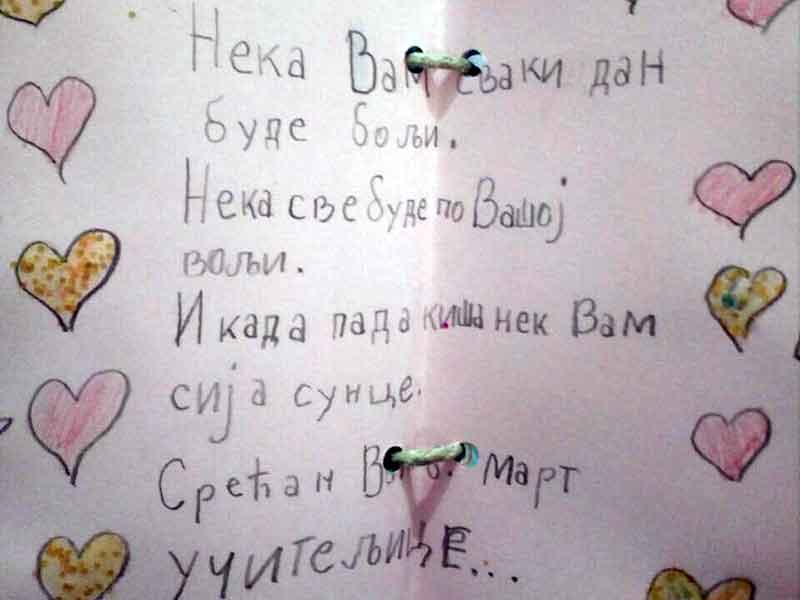 Нека Вам сваки дан
буде бољи.
Нека све буде по Вашој
вољи.
И када пада киша нек Вам
сија сунце.
Срећан март
учитељице...